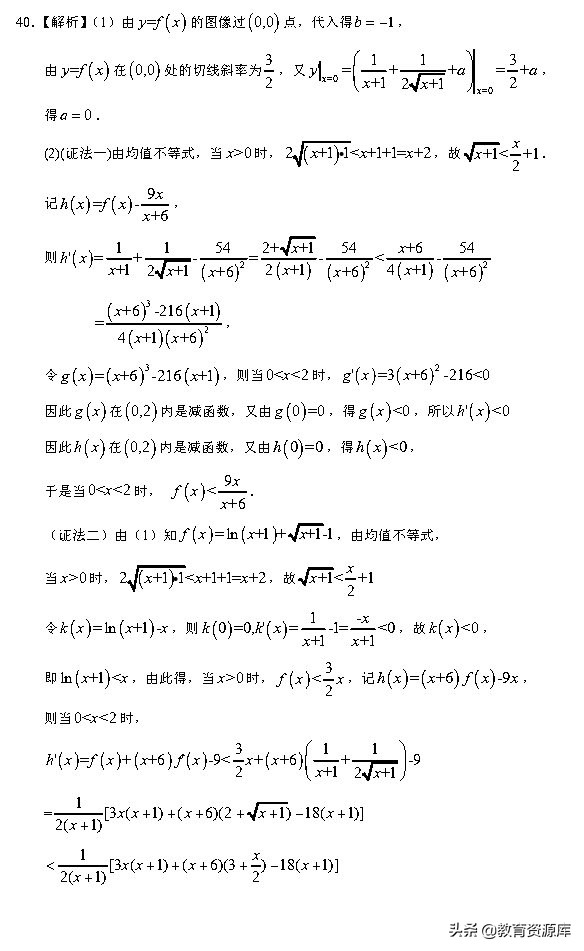 40.【解析】（1）由 y=f(x) 的图像过 (0,0) 点，代入得 b = −1，
由 y=f(x) 在 (0,0) 处的切线斜率为 3/2 ，又 y'|x=0 =(1/(x+1) + 1/(2√(x+1)) +a)|x=0 = 3/2 +a，
得 a = 0．
(2)(证法一)由均值不等式，当 x>0 时，2√((x+1)•1)<x+1+1=x+2，故 √(x+1)< x/2 +1．
记 h(x)=f(x)- 9x/(x+6)，
则 h'(x)= 1/(x+1) + 1/(2√(x+1)) - 54/(x+6)² = (2+√(x+1))/(2(x+1)) - 54/(x+6)² < (x+6)/(4(x+1)) - 54/(x+6)²
= ((x+6)³ -216(x+1))/(4(x+1)(x+6)²)，
令 g(x)=(x+6)³-216(x+1)，则当 0<x<2 时，g'(x)=3(x+6)² -216<0
因此 g(x) 在 (0,2) 内是减函数，又由 g(0)=0，得 g(x)<0，所以 h'(x)<0
因此 h(x) 在 (0,2) 内是减函数，又由 h(0)=0，得 h(x)<0，
于是当 0<x<2 时， f(x)< 9x/(x+6)．
（证法二）由（1）知 f(x)=ln(x+1)+√(x+1)-1，由均值不等式，
当 x>0 时，2√((x+1)•1)<x+1+1=x+2，故 √(x+1)< x/2 +1
令 k(x)=ln(x+1)-x，则 k(0)=0,k'(x)= 1/(x+1) -1= -x/(x+1) <0，故 k(x)<0，
即 ln(x+1)<x，由此得，当 x>0 时，f(x)< 3/2 x，记 h(x)=(x+6)f(x)-9x，
则当 0<x<2 时，
h'(x)=f(x)+(x+6)f'(x)-9< 3/2 x+(x+6)(1/(x+1) + 1/(2√(x+1)))-9
= 1/(2(x+1)) [3x(x+1)+(x+6)(2+√(x+1))−18(x+1)]
< 1/(2(x+1)) [3x(x+1)+(x+6)(3+ x/2)−18(x+1)]
头条 @教育资源库